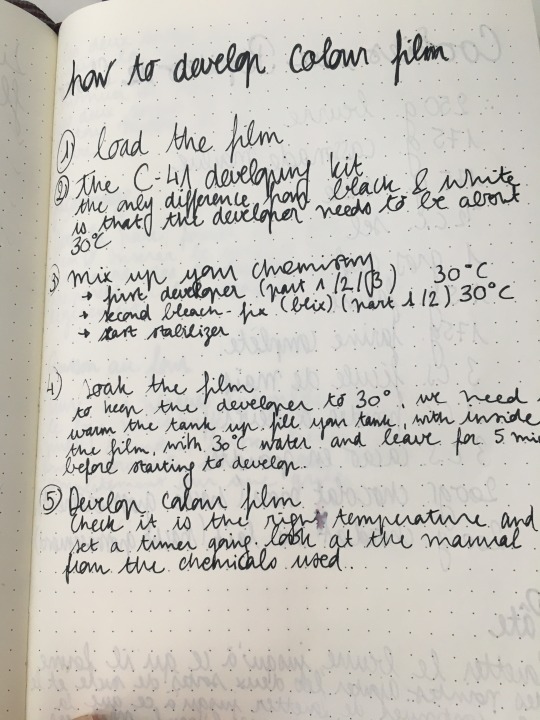 how to develop colour film
① load the film
② the C-41 developing kit
the only difference from black & white
is that the developer needs to be about
30°C
③ Mix up your chemistry
→ first developer (part 1/2/3) 30°C
→ second bleach-fix (blix) (part 1/2) 30°C
→ stabilizer
④ Soak the film
to keep the developer to 30°, we need
warm the tank up. fill your tank, with inside
the film, with 30°C water and leave for 5 mi
before starting to develop.
⑤ Develop colour film
Check it is the right temperature and
set a timer going. look at the manual
from the chemicals used.